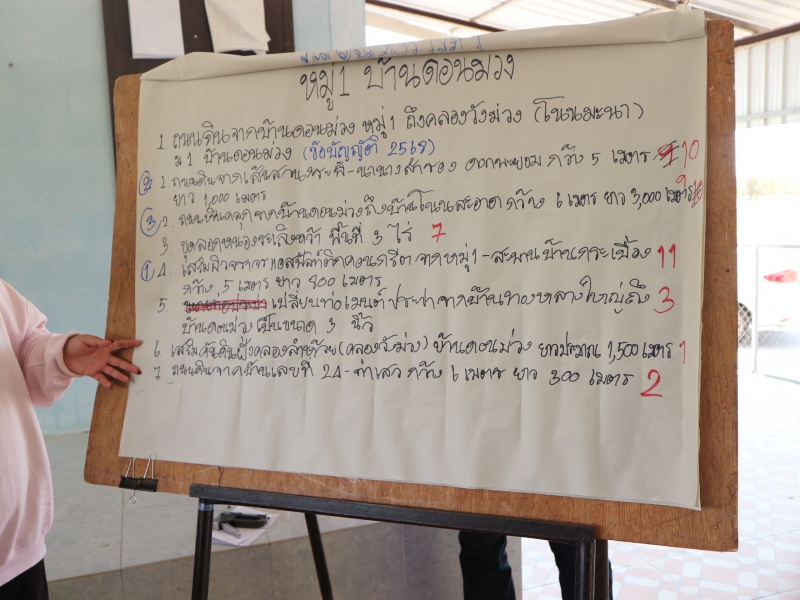 หมู่ 1 บ้านดอนม่วง
1. ถนนดินจากบ้านดอนม่วง หมู่1 ถึงคลองวังม่วง (โนนมะนา)
ม.1 บ้านดอนม่วง (ข้อบัญญัติ 2568)
② 1. ถนนดินสาย กว้าง 5 เมตร 10
ยาว 1,000 เมตร
③ 2. ถนนหินคลุกจากบ้านดอนม่วงถึงบ้านโนนสะอาด กว้าง 6 เมตร ยาว 3,000 เมตร 10
3. ขุดลอกหนองชะเลิงหว้า พื้นที่ 3 ไร่ 7
① 4. เสริมผิวจราจรแอสฟัลท์ติกคอนกรีต จากหมู่1-สะพานบ้านกระเบื้อง 11
กว้าง 5 เมตร ยาว 800 เมตร
5. เปลี่ยนท่อเมนต์ประปาจากบ้านทางหลางใหญ่ถึง 3
บ้านดอนม่วงเป็นขนาด 3 นิ้ว
6. เสริมคันดินฝั่งคลองลำห้วย(คลองวังม่วง) บ้านดอนม่วง ยาวประมาณ 1,500 เมตร 1
7. ถนนดินจากบ้านเลขที่ 24 - ท่าเสา กว้าง 6 เมตร ยาว 300 เมตร 2